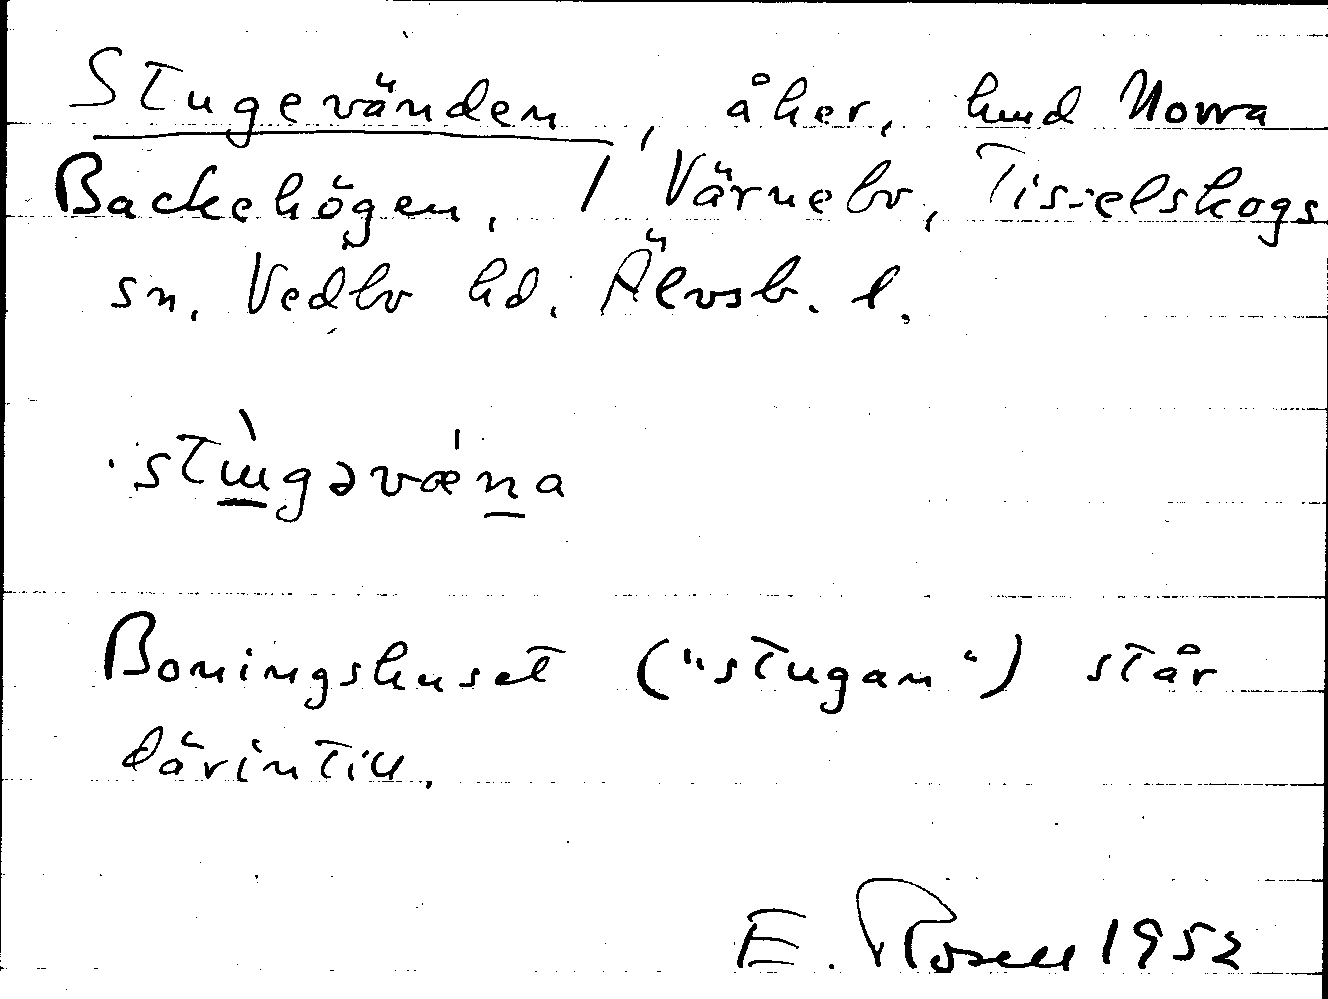 Stugevänden, åker, hmd Norra
Backehögen, 1 Värnebo, Tisselskogs
sn. Vedbo hd. Älvsb. l.
stɯ̀gəvǽna
Boningshuset ("stugan") står
därintill.
E. Rosell 1952